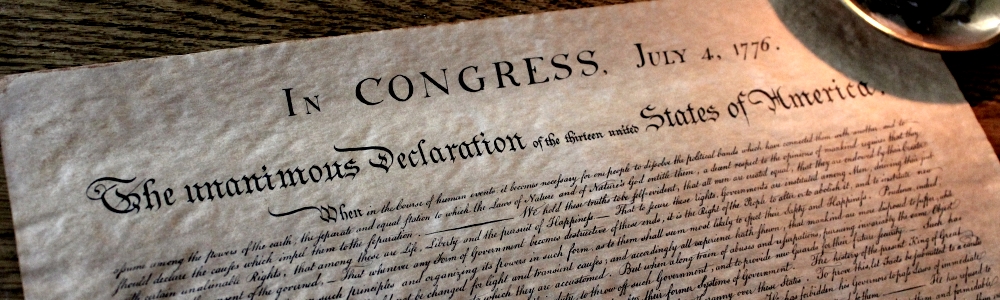 In CONGRESS, July 4, 1776.
The unanimous Declaration of the thirteen united States of America.
When in the Course of human events, it becomes necessary for one people to dissolve the political bands which have connected them with another, and to
assume among the powers of the earth, the separate and equal station to which the Laws of Nature and of Nature's God entitle them, a decent respect to the opinions of mankind requires that they
should declare the causes which impel them to the separation. We hold these truths to be self-evident, that all men are created equal, that they are endowed by their Creator
with certain unalienable Rights, that among these are Life, Liberty and the pursuit of Happiness.— That to secure these rights, Governments are instituted among Men, deriving their just
consent of the governed, — That whenever any Form of Government becomes destructive of these ends, it is the Right of the People to alter or to abolish it, and to institute new
such principles and organizing its powers in such form, as to them shall seem most likely to effect their Safety and Happiness. Prudence, indeed,
be changed for light and transient causes; and accordingly all experience hath shewn, that mankind are more disposed to suffer, while
which they are accustomed. But when a long train of abuses and usurpations, pursuing invariably the same Object
to throw off such Government, and to provide new Guards for their future security.— Such has
their former Systems of Government. The history of the present King of Great
Tyranny over these States. To prove this, let Facts be submitted to a candid
has forbidden his Governors to pass Laws of immediate